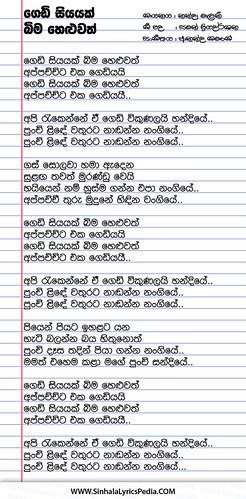 ගෙඩි සියයක්
බිම හෙළුවත්
ගෙඩි සියයක් බිම හෙළුවත්
අප්පච්චිට එක ගෙඩියයි
ගෙඩි සියයක් බිම හෙළුවත්
අප්පච්චිට එක ගෙඩියයි..
අපි රැකෙන්නේ ඒ ගෙඩි විකුණලයි හන්දියේ..
පුංචි ළිඳේ වතුරට නාඬන්න නංගියේ..
පුංචි ළිඳේ වතුරට නාඬන්න නංගියේ..
ගස් සොලවා හමා ඇදෙන
සුළඟ තවත් මුරණ්ඩු වෙයි
හයියෙන් නම් හුස්ම ගන්න එපා නංගියේ..
අප්පච්චි තුරු මුදුනේ හිඳින වංගියේ..
ගෙඩි සියයක් බිම හෙළුවත්
අප්පච්චිට එක ගෙඩියයි
ගෙඩි සියයක් බිම හෙළුවත්
අප්පච්චිට එක ගෙඩියයි..
අපි රැකෙන්නේ ඒ ගෙඩි විකුණලයි හන්දියේ..
පුංචි ළිඳේ වතුරට නාඬන්න නංගියේ..
පුංචි ළිඳේ වතුරට නාඬන්න නංගියේ..
පියෙන් පියට ඉහළට යන
හැටි බලන්න බය හිතුනොත්
පුංචි දෑස තදින් පියා ගන්න නංගියේ..
මමත් එහෙම කළා මගේ පුංචි සන්දියේ..
ගෙඩි සියයක් බිම හෙළුවත්
අප්පච්චිට එක ගෙඩියයි
ගෙඩි සියයක් බිම හෙළුවත්
අප්පච්චිට එක ගෙඩියයි..
අපි රැකෙන්නේ ඒ ගෙඩි විකුණලයි හන්දියේ..
පුංචි ළිඳේ වතුරට නාඬන්න නංගියේ..
පුංචි ළිඳේ වතුරට නාඬන්න නංගියේ...
www.SinhalaLyricsPedia.com